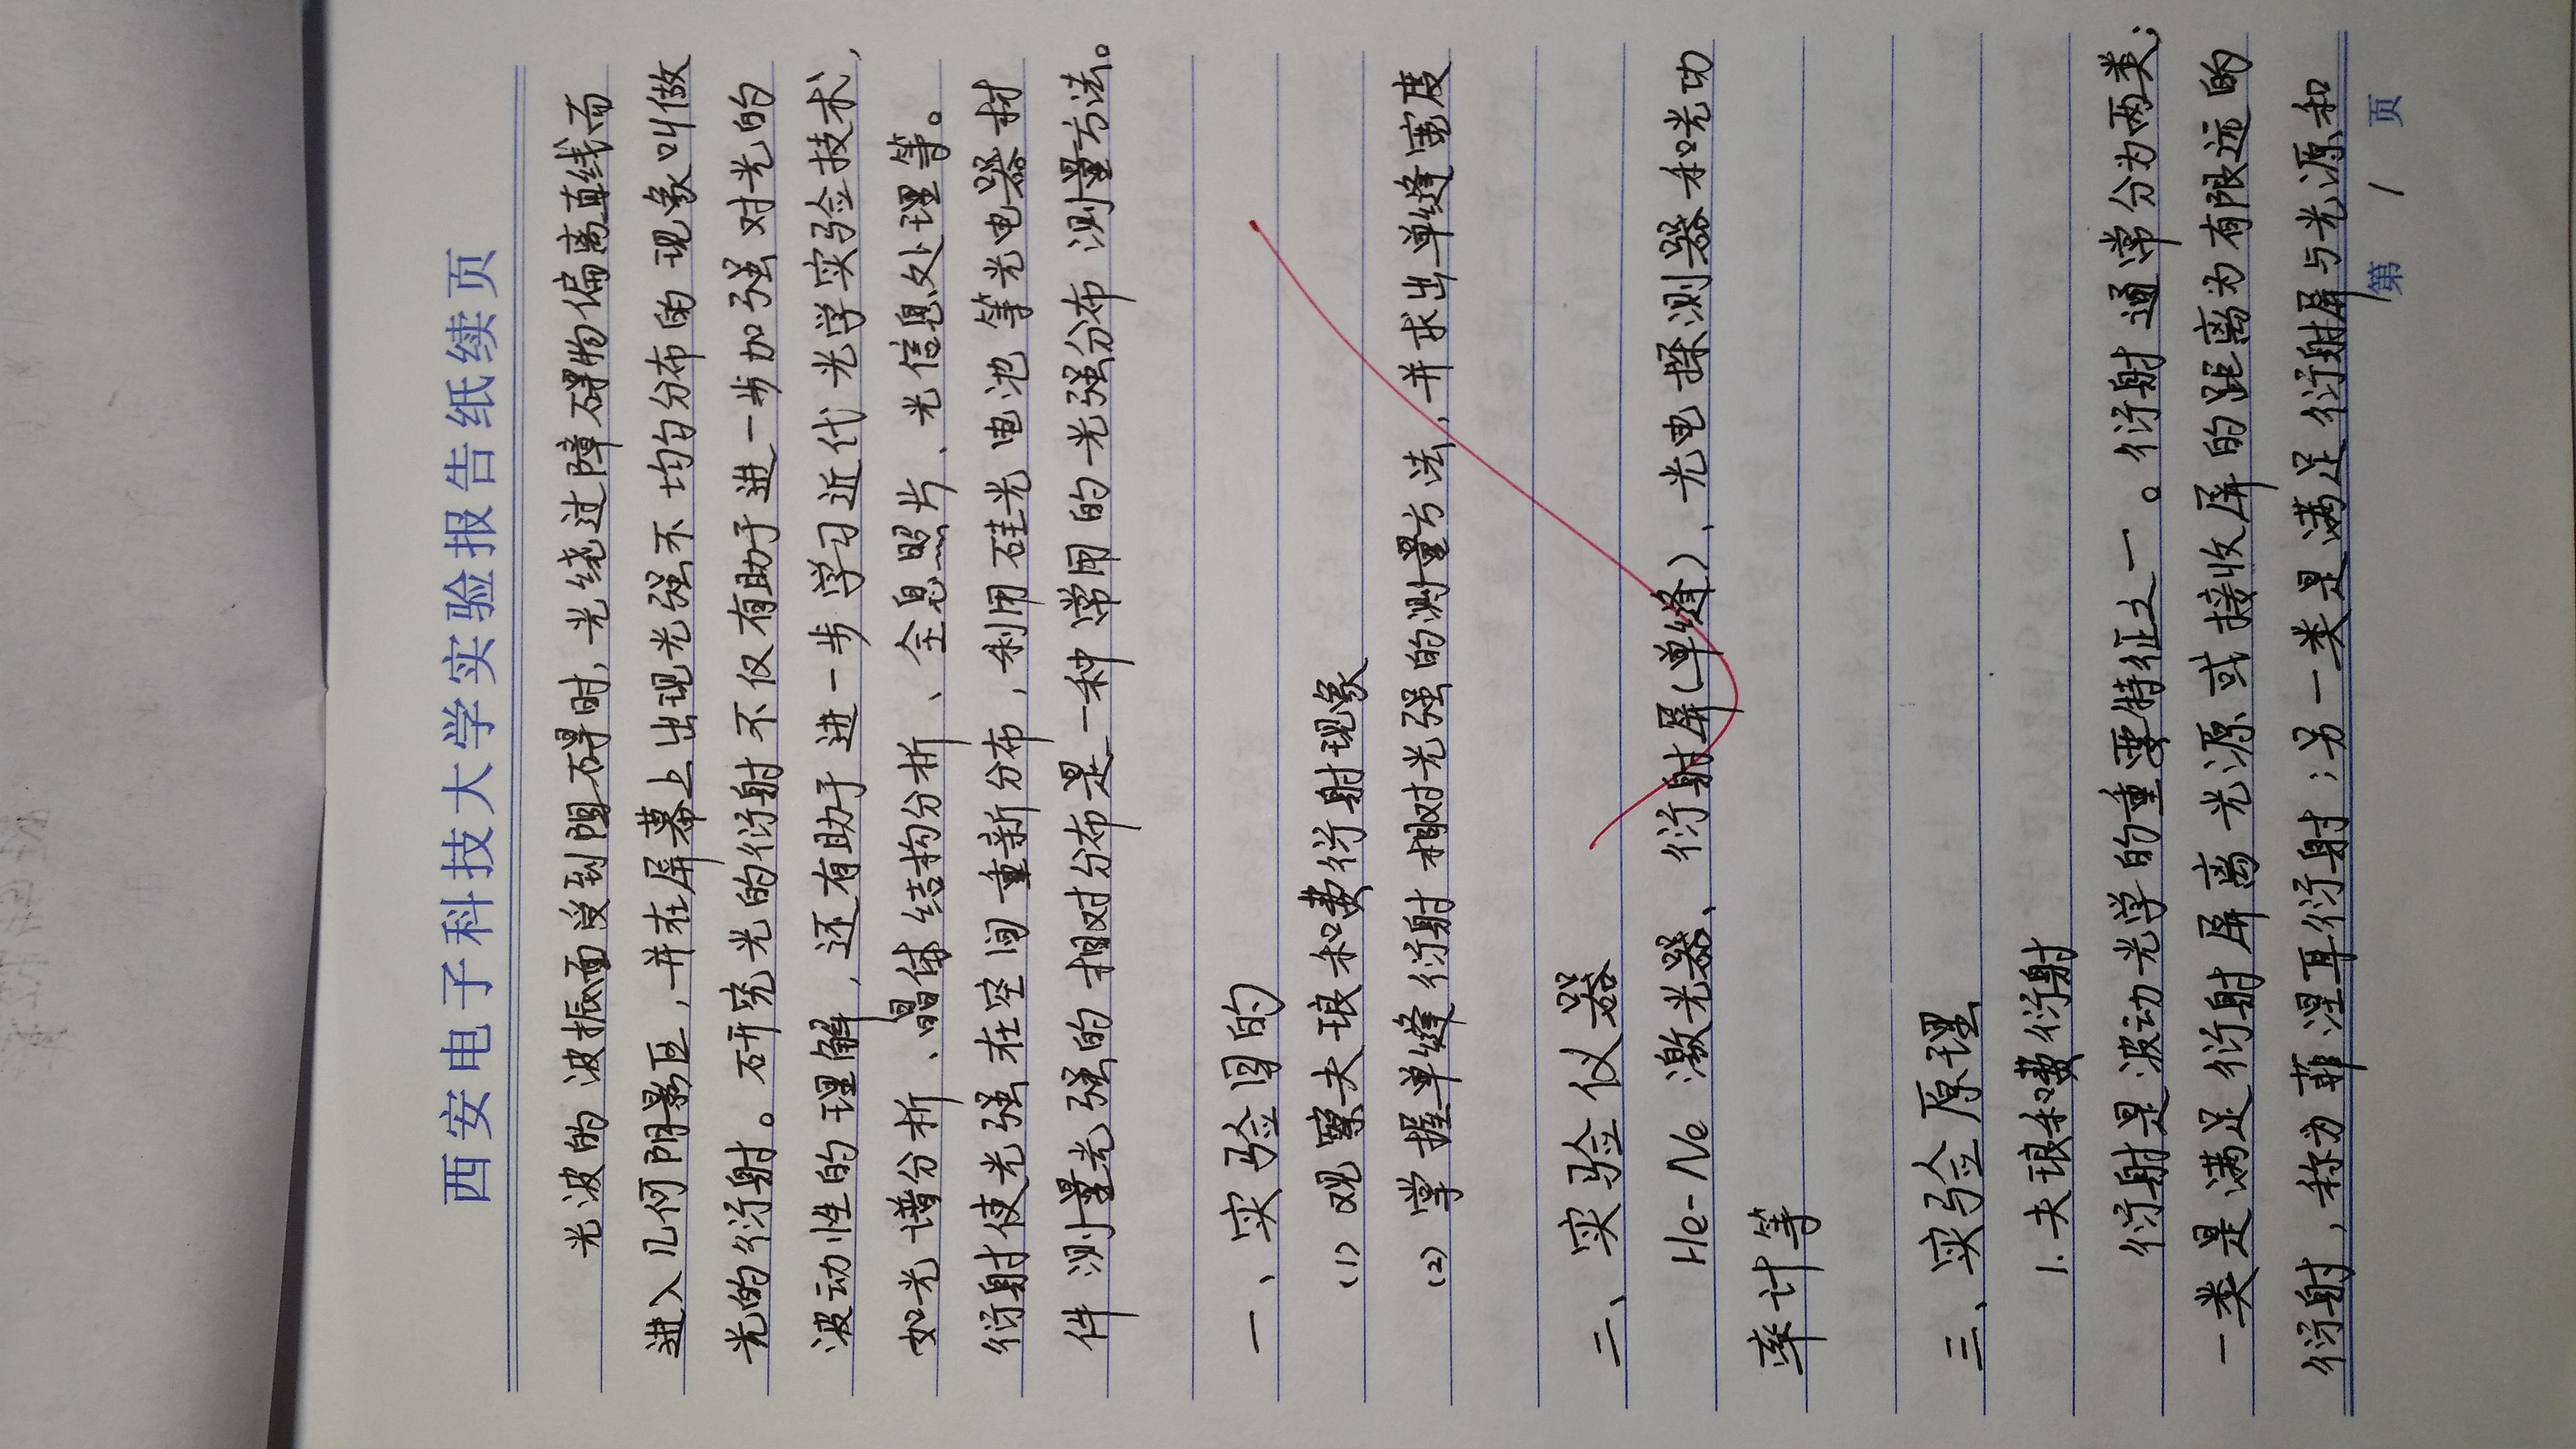 西安电子科技大学实验报告纸续页
光波的波振面受到阻碍时,光绕过障碍物偏离直线而
进入几何阴影区,并在屏幕上出现光强不均匀分布的现象叫做
光的衍射。研究光的衍射不仅有助于进一步加强对光的
波动性的理解,还有助于进一步学习近代光学实验技术,
如光谱分析、晶体结构分析、全息照片、光信息处理等。
衍射使光强在空间重新分布,利用硅光电池等光电器材
件测量光强的相对分布是一种常用的光强分布测量方法。
一、实验目的
(1) 观察夫琅和费衍射现象
(2) 掌握单缝衍射相对光强的测量方法,并求出单缝宽度
二、实验仪器
He-Ne 激光器、衍射屏(单缝)、光电探测器和光功
率计等
三、实验原理
1.夫琅和费衍射
衍射是波动光学的重要特征之一。衍射通常分为两类:
一类是满足衍射屏离光源或接收屏的距离为有限远的
衍射,称为菲涅耳衍射;另一类是满足衍射屏与光源和
第 1 页